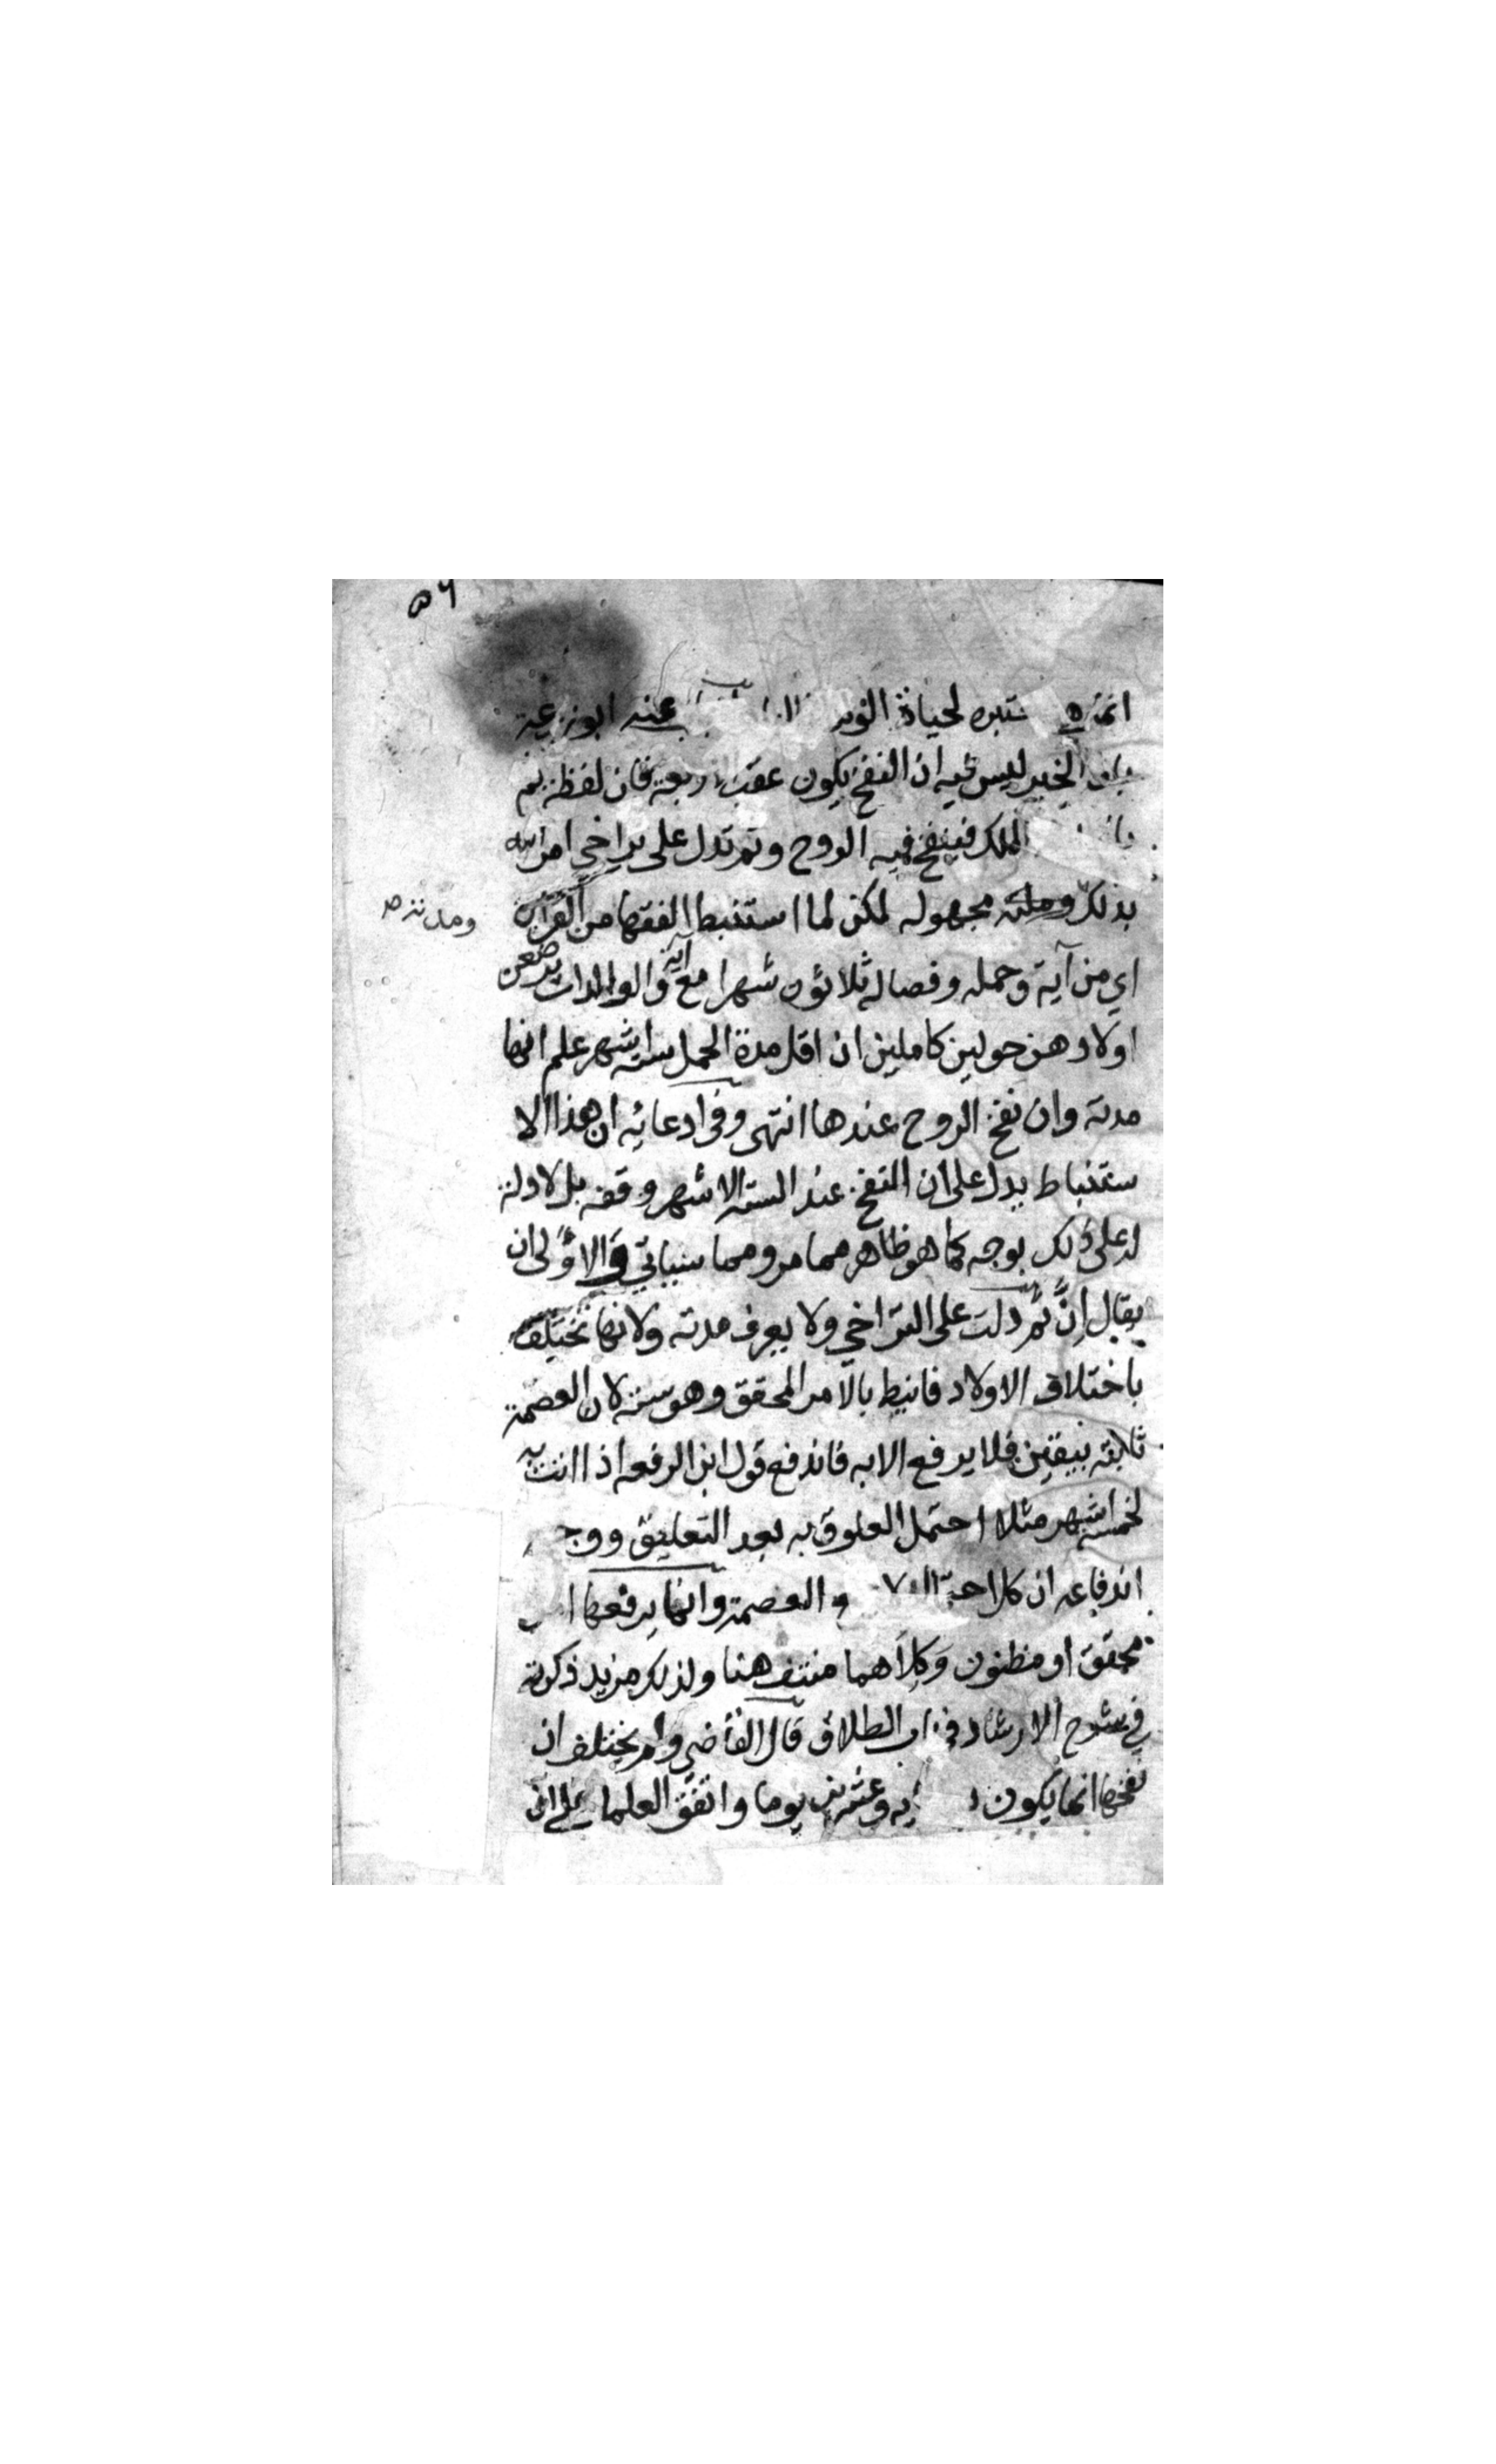 ٥٦
لحياة عنه ابو زرعة
الخبر ليس فيه ان النفخ يكون عقب فان لفظه ثم
الملك فينفخ فيه الروح وثم تدل على تراخي امر الله
بذلك ومدته مجهوله لكن لما استنبط الفقها من القرآن
ومدته صح
اي من آية وحمله وفصاله ثلاثون شهرا مع آية والوالدات يرضعن
اولادهن حولين كاملين ان اقل مدة الحمل ستة اشهر علم انها
مدته وان نفخ الروح عندها انتهى وفى ادعائه ان هذا الا
ستنباط يدل على ان النفخ عند الستة الاشهر وقفه بل لا دلالة
له على ذلك بوجه كما هو ظاهر مما مر ومما سياتي والاولى ان
يقال ان ثم دلت على التراخي ولا يعرف مدته ولانها تختلف
باختلاف الاولاد فانيط بالامر المحقق وهو ستة لان العصمة
ثابتة بيقين فلا يرفع الا به فاندفع قول ابن الرفعه اذا اتت به
لخمسة اشهر مثلا احتمل العلوق به بعد التعليق ووجه
اندفاعه ان كلا العصمة وانما يرفعها
محقق او مظنون وكلاهما منتف هنا ولذلك مزيد ذكرته
في شرح الارشاد في باب الطلاق قال القاضي ولم يختلف ان
نفخها انما يكون وعشرين يوما واتفق العلما على ان